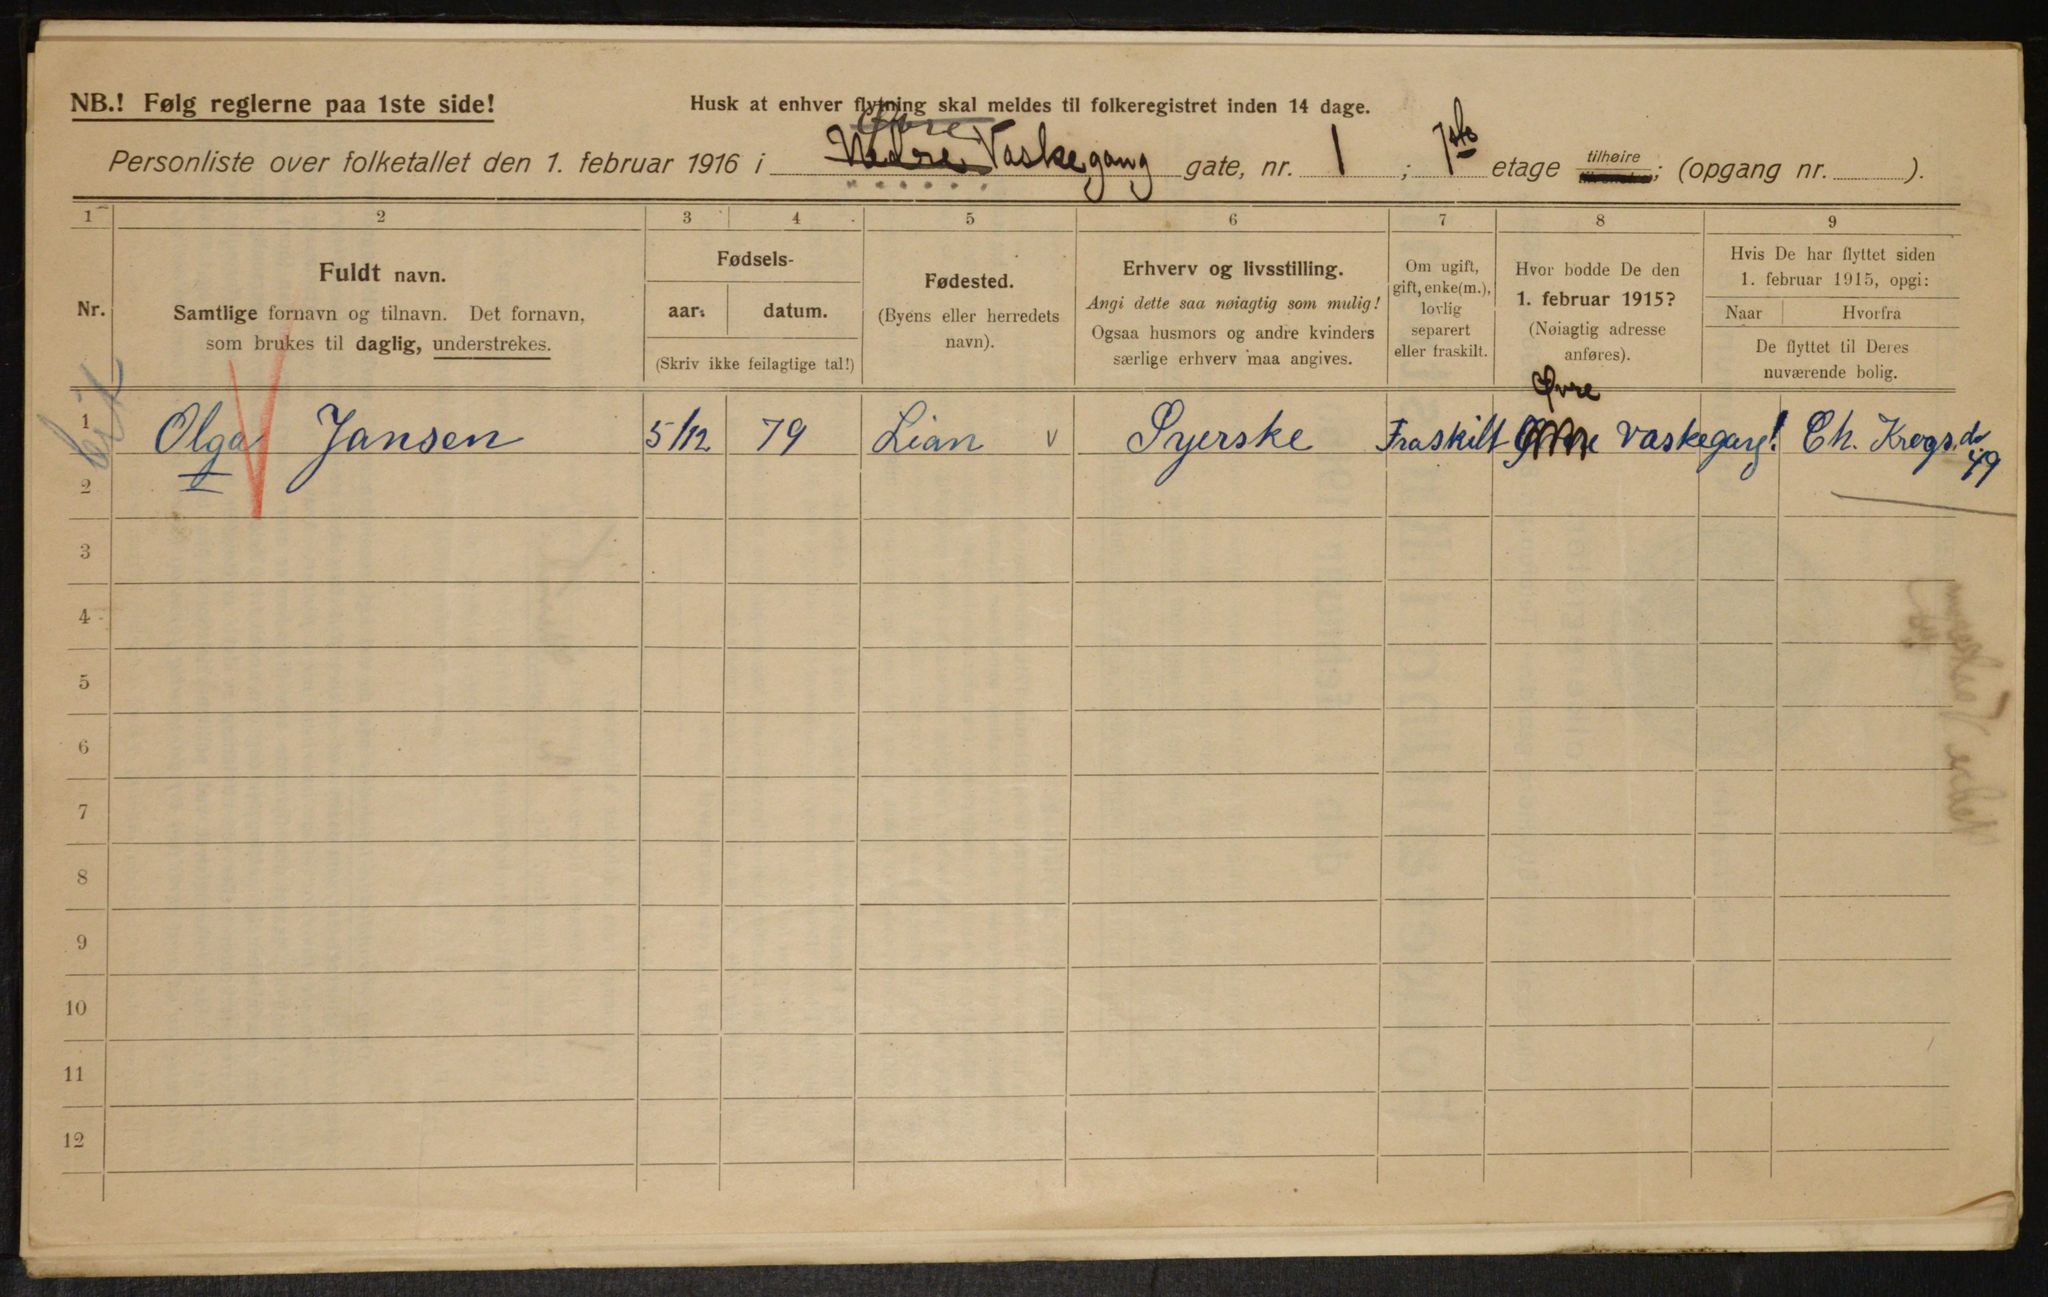 NB.! Følg reglerne paa 1ste side!
Husk at enhver flytning skal meldes til folkeregistret inden 14 dage.
Øvre
Personliste over folketallet den 1. februar 1916 i Nedre Vaskegang gate, nr. 1 ; 1ste etage tilhøire; (opgang nr. ).
1 2 3 4 5 6 7 8 9
Nr.
Fuldt navn.
Samtlige fornavn og tilnavn. Det fornavn,
som brukes til daglig, understrekes.
Fødsels-
aar: datum.
(Skriv ikke feilagtige tal!)
Fødested.
(Byens eller herredets
navn).
Erhverv og livsstilling.
Angi dette saa nøiagtig som mulig!
Ogsaa husmors og andre kvinders
særlige erhverv maa angives.
Om ugift,
gift, enke(m.),
lovlig
separert
eller fraskilt.
Hvor bodde De den
1. februar 1915?
(Nøiagtig adresse
anføres).
Hvis De har flyttet siden
1. februar 1915, opgi:
Naar Hvorfra
De flyttet til Deres
nuværende bolig.
Øvre
1 Olga Jansen 5/12 79 Lian v Syerske Fraskilt Vaskegang 1 Ch. Krogs.
49
2
3
4
5
6
7
8
9
10
11
12